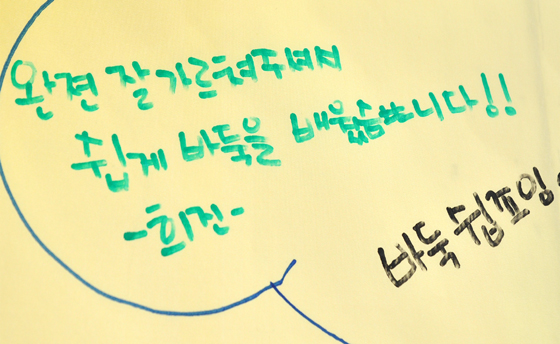 완젼 잘 가르쳐주셔서
쉽게 바둑을 배웠습니다!!
-희진-
바둑 쉽죠잉